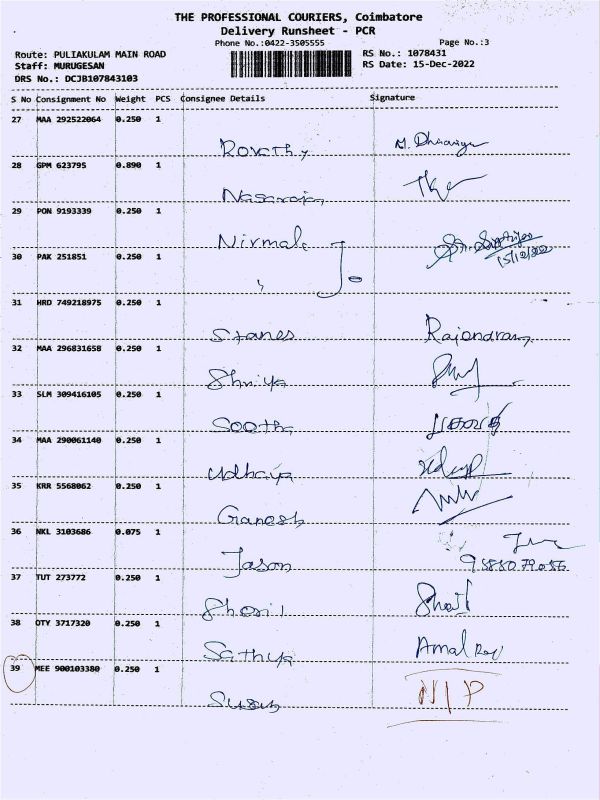 THE PROFESSIONAL COURIERS, Coimbatore
Delivery Runsheet - PCR
Phone No.:0422-3505555 Page No.:3
Route: PULIAKULAM MAIN ROAD RS No.: 1078431
Staff: MURUGESAN RS Date: 15-Dec-2022
DRS No.: DCJB107843103
S No Consignment No Weight PCS Consignee Details Signature
27 MAA 292522064 0.250 1
28 GPM 623795 0.890 1
29 PON 9193339 0.250 1
Nirmala
15/12/22
30 PAK 251851 0.250 1
31 HRD 749218975 0.250 1
Stanes Rajendran
32 MAA 296831658 0.250 1
Shriya
33 SLM 309416105 0.250 1
34 MAA 290061140 0.250 1
Udhaya
35 KRR 5568062 0.250 1
Ganesh
36 NKL 3103686 0.075 1
Jason
37 TUT 273772 0.250 1
38 OTY 3717320 0.250 1
Sathya Amal Raj
39 MEE 900103380 0.250 1
N/P